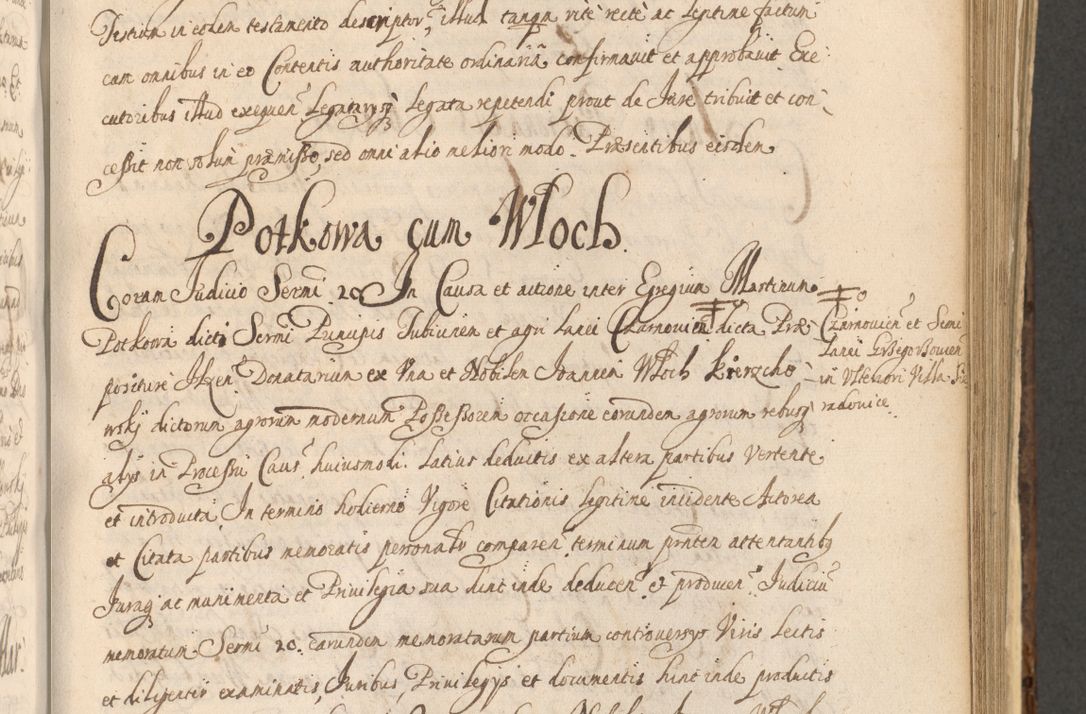 Testium in eodem testamento descriptor. illud tanqm rite recte ac legitime factum
cum omnibus in eo Contentis authoritate ordinaria confirmavit et approbavit Exe
cutoribus illud exequen. Legatarysq Legata repetendi prout de Jure tribuit et con
cessit non solum præmisso, sed omni alio meliori modo. Præsentibus eisdem
Potkowa cum Włoch
Coram Judicio Sermi 20. In Causa et actione inter Egregium Martinum
Potkowa dicti Sermi Principis Jubivinem et agri Lanei Czarnovien dicta Præ
positure Ilzen. Donatarium ex Una et Nobilem Joannem Włoch Kierzcho
wskj dictorum agrorum modernum Possessorem occasione eorundem agrorum rebusq
alys in Processu Caus. huiusmodi Latius deductis ex altera partibus Vertente
et introducta In termino hodierno Vigore Citationis legitime incidente Actorea
et Citata partibus memoratis personalr comparen. terminum pnten attentantibq
Juraq ac munimenta et Privilegia sua hinc inde deducen. et producen. Judiciu
memoratum Sermi 20. earundem memoratarum partium controversys Viris Lectis
et diligenter examinatis, Juribus, Privilegys et documentis hinc inde productis
Czarnovien et Semi
Lanei Grzegorzowien
in Ulteriori Villa
radovice